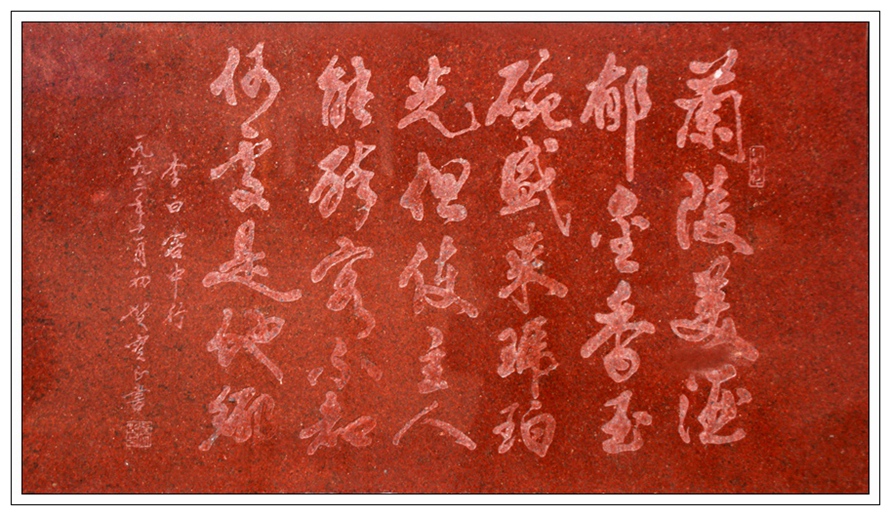 蘭陵美酒
郁金香玉
碗盛来琥珀
光但使主人
能醉客不知
何處是他鄉
李白客中行
一九九二年月初書